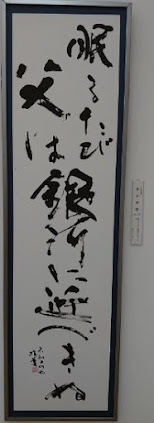 眠るたび
父は銀河に近づきぬ